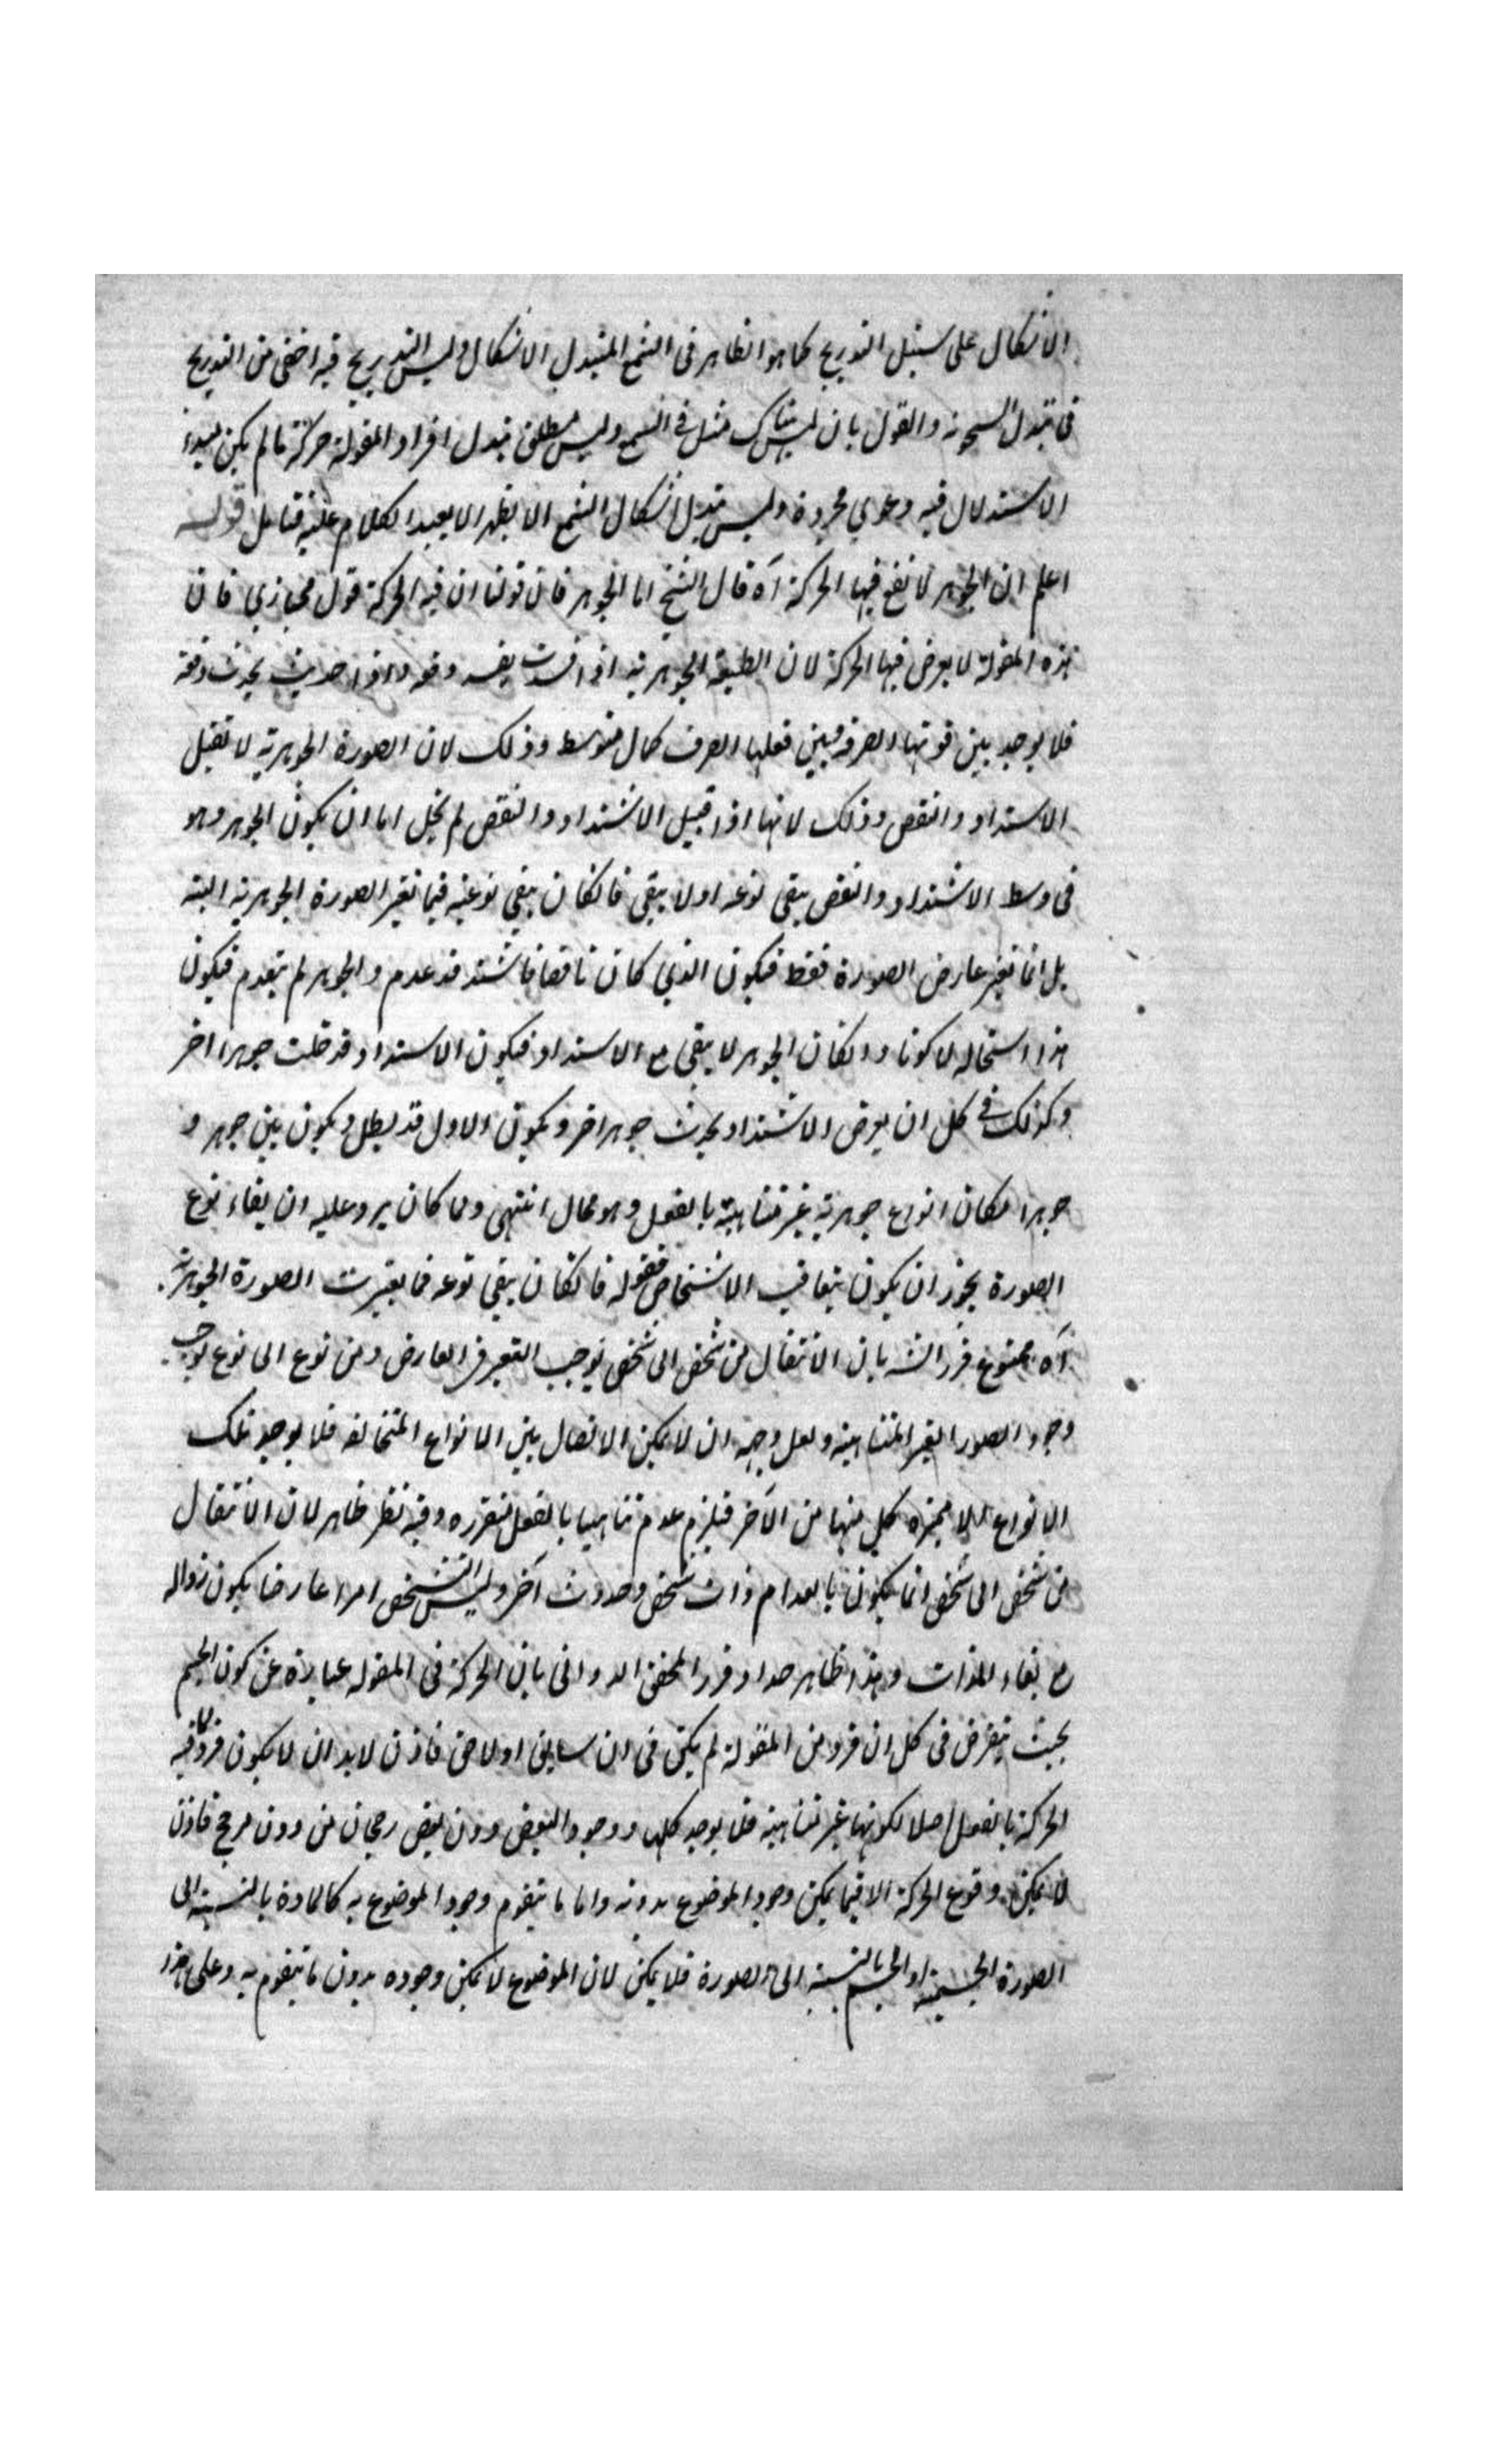 الاشكال على سبيل التدريج كما هو الظاهر فى الشمع المتبدل الاشكال وليس التدريج فيه اخفى من التدريج
فى تبدل السخونة والقول بان ليس هناك مثل فى الشمع وليس مطلق تبدل افراد المقولة حركة ما لم يكن
الاستدلال فيه دعوى مجردة وليس تبدل اشكال الشمع الا الكلام عليه فتامل قوله
اعلم ان الجوهر لا تقع فيها الحركة آه قال الشيخ اما الجوهر فان قولنا ان فيه الحركة قول مجازي فان
هذه المقولة لا يعرض فيها الحركة لان الطبيعة الجوهرية اذا فسدت يفسد دفعة واذا حدثت يحدث دفعة
فلا يوجد بين قوتها الصرفة وبين فعلها الصرف كمال متوسط وذلك لان الصورة الجوهرية لا تقبل
الاشتداد والنقص وذلك لانها اذا قبل الاشتداد والنقص لم يخل اما ان يكون الجوهر وهو
فى وسط الاشتداد والنقص يبقى نوعه اولا يبقى فانكان يبقى نوعيته فما تغير الصورة الجوهرية البتة
بل انما تغير عارض الصورة فقط فيكون الذي كان ناقصا فاشتد قد عدم والجوهر لم يعدم فيكون
هذا استحالة لا كونا وانكان الجوهر لا يبقى مع الاشتداد فيكون الاشتداد قد جوهرا اخر
وكذلك فى كل ان يعرض الاشتداد يحدث جوهر اخر ويكون الاول قد بطل ويكون بين جوهر و
جوهر امكان انواع جوهرية غير متناهية بالفعل وهو محال انتهى ولما كان يرد عليه ان بقاء نوع
الصورة يجوز ان يكون بتعاقب الاشخاص فقوله فانكان يبقى نوعه فما تغيرت الصورة الجوهرية
آه ممنوع قرر الش بان الانتقال من شخص الى شخص يوجب التغير فى العارض ومن نوع الى نوع يوجب
وجود الصور الغير المتناهية ولعل وجهه ان لا يمكن الاتصال بين الانواع المتخالفة فلا يوجد تلك
الانواع الا كل منها من الآخر فيلزم عدم تناهيها بالفعل وفيه نظر ظاهر لان الانتقال
من شخص الى شخص انما يكون بانعدام ذات شخص وحدوث آخر وليس التشخص امرا عارضا يكون زواله
مع بقاء الذات وهذا ظاهر جدا وقرر المحقق الدوانى بان الحركة فى المقولة عبارة عن كون الجسم
بحيث يفرض فى كل ان فرد من المقولة لم يكن فى ان سابق او لاحق فاذن لابد ان لا يكون فرد ما فيه
الحركة بالفعل اصلا لكونها غير متناهية فلا يوجد كلها ووجود البعض دون بعض رجحان من دون مرجح فاذن
لا يمكن وقوع الحركة الا فيما يمكن وجود الموضوع بدونه واما ما يتقوم وجود الموضوع به كالمادة بالنسبة الى
الصورة الجسمية او الجسم بالنسبة الى الصورة فلا يمكن لان الموضوع لا يمكن وجوده بدون ما يتقوم به وعلى هذا